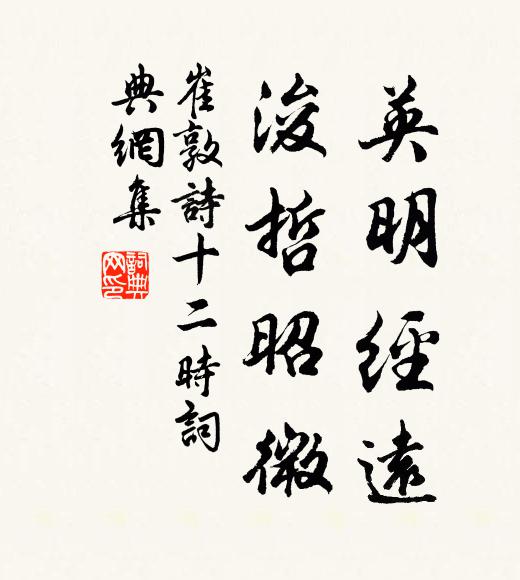 英明經遠
浚哲昭微
崔敦詩十二時詞
典網集
詞典網印